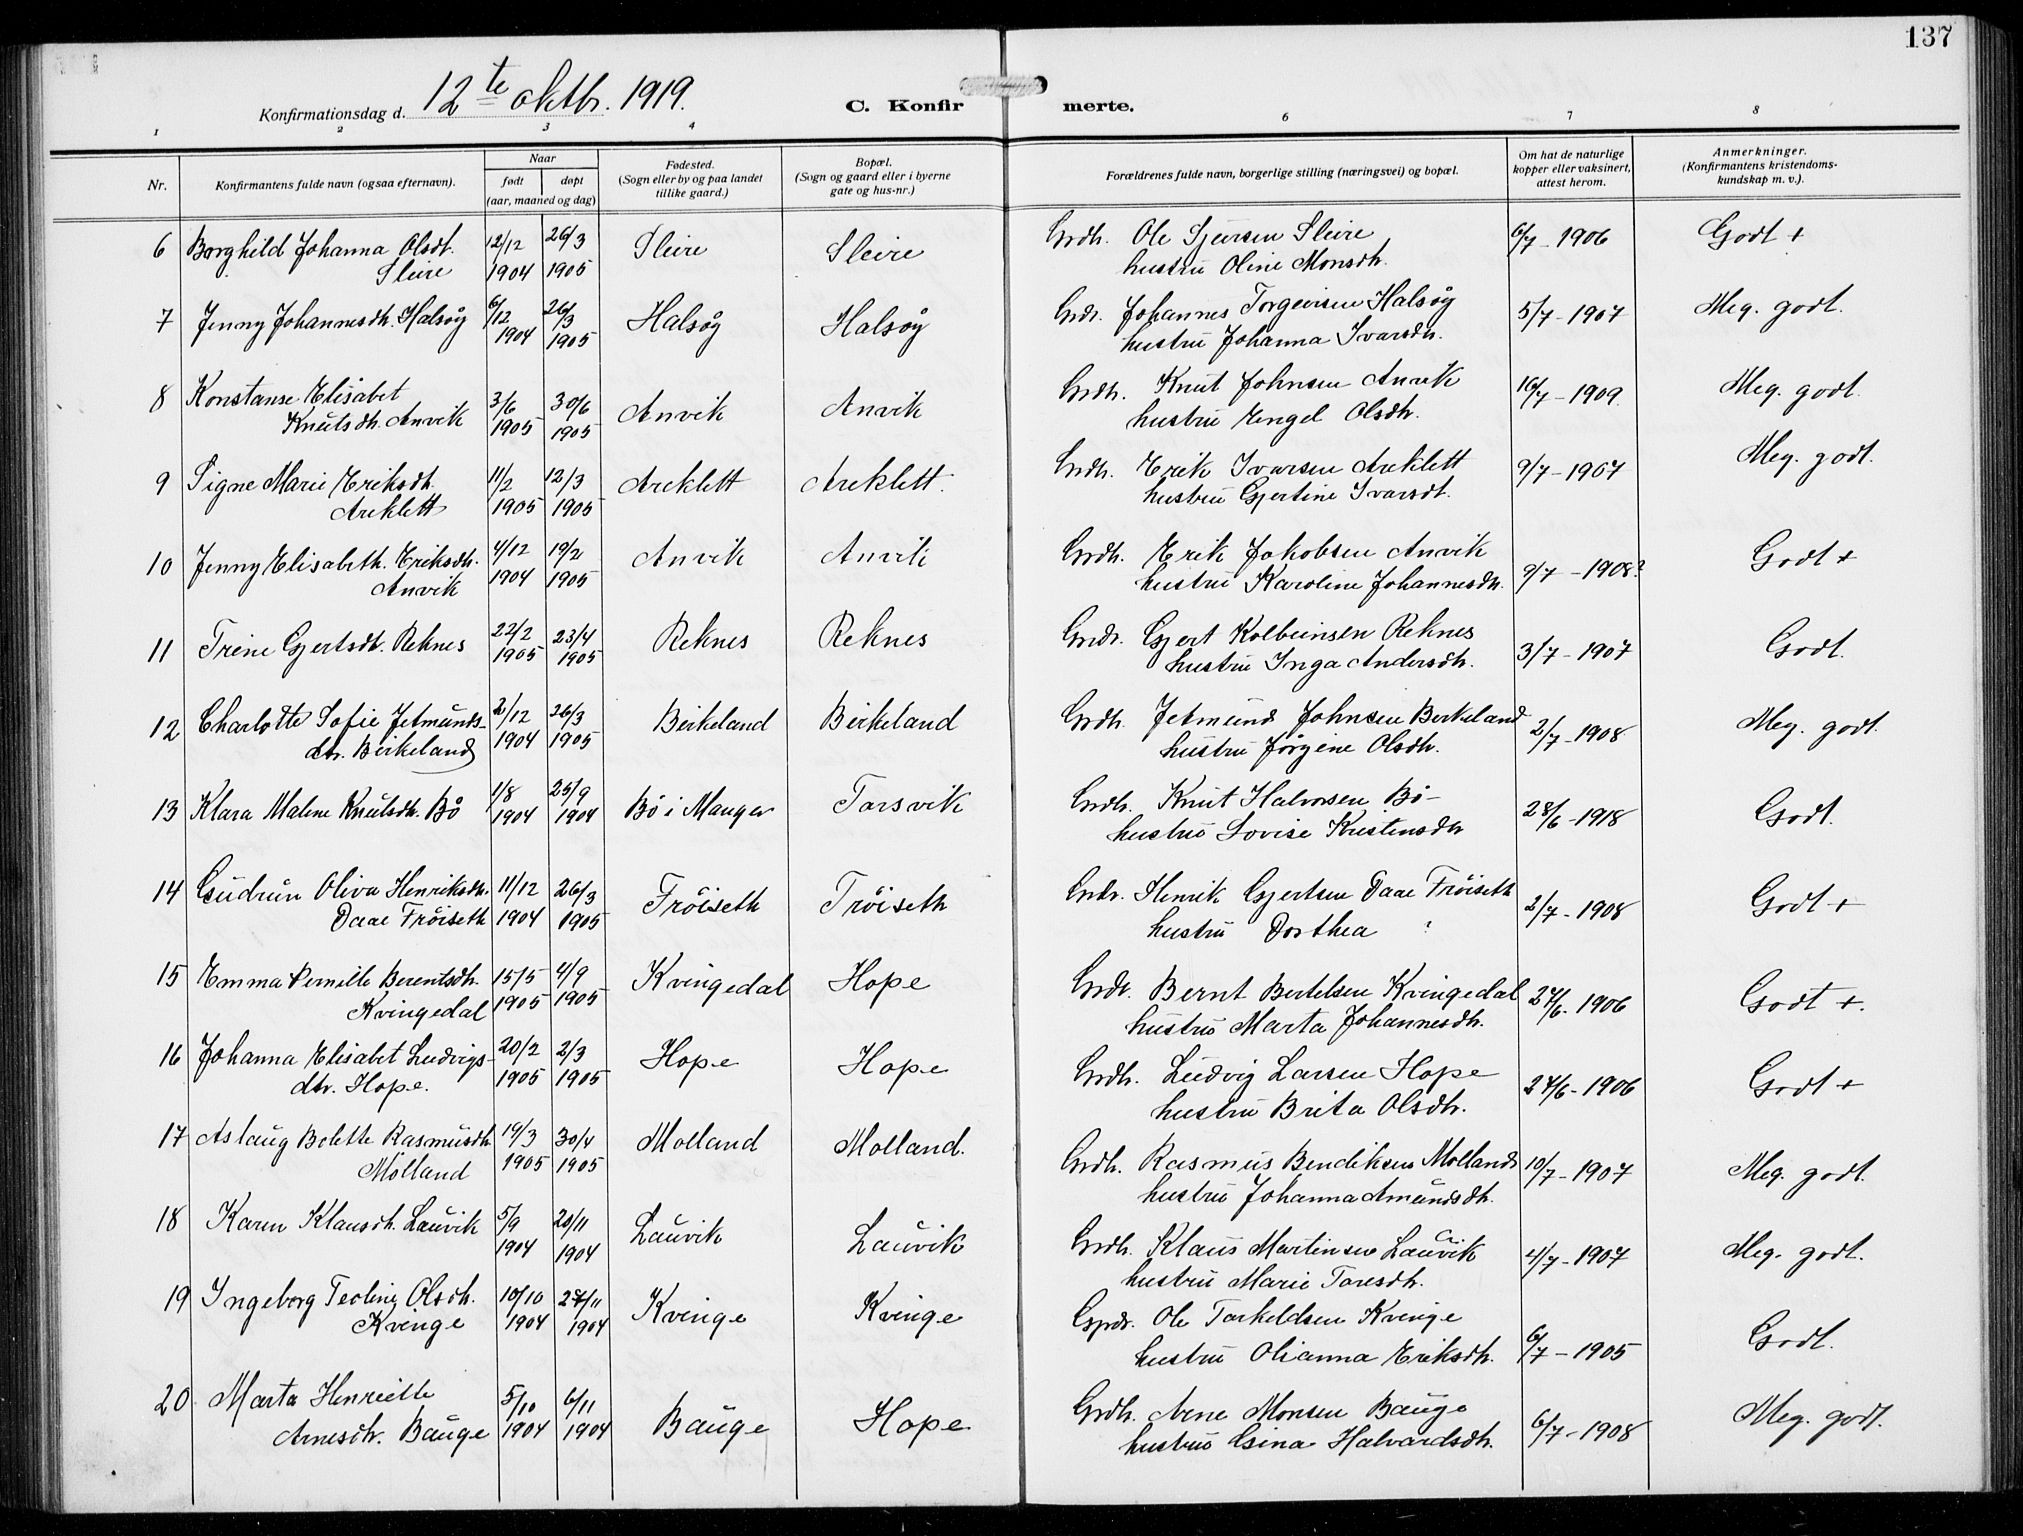 137
Konfirmationsdag d. 12te oktbr. 1919.
C. Konfirmerte.
1 2 3 4 6 7 8
Nr.
Konfirmantens fulde navn (ogsaa efternavn).
Naar
født
døpt
(aar, maaned og dag)
Fødested.
(Sogn eller by og paa landet
tillike gaard.)
Bopæl.
(Sogn og gaard eller i byerne
gate og hus-nr.)
Forældrenes fulde navn, borgerlige stilling (næringsvei) og bopæl.
Om hat de naturlige
kopper eller vaksinert,
attest herom.
Anmerkninger.
(Konfirmantens kristendoms-
kundskap m. v.).
6 Borghild Johanna Olsdt. 12/12 26/3 Sleire Sleire Grdh. Ole Sjursen Sleire 6/7 - 1906 Godt +
Sleire 1904 1905 hustru Oline Monsdtr.
7 Jenny Johannesdtr. Halsøy 6/12 26/3 Halsøy Halsøy Grdr. Johannes Torgeirsen Halsøy 5/7 - 1907 Meg. godt.
1904 1905 hustru Johanna Ivarsdtr.
8 Konstanse Elisabet 3/6 30/6 Anvik Anvik Grdh. Knut Johnsen Anvik 16/7 - 1909. Meg. godt.
Knutsdtr. Anvik 1905 1905 hustru Engel Olsdtr.
9 Signe Marie Eriksdtr. 11/2 12/3 Areklett Areklett. Grdh. Erik Ivarsen Areklett 9/7 - 1907 Meg. godt.
Areklett 1905 1905 hustru Gjertine Ivarsdt.
10 Jenny Elisabeth. Eriksdtr. 4/12 19/2 Anvik Anvik Grdh. Erik Jakobsen Anvik 9/7 - 1908? Godt +
Anvik 1904 1905 hustru Karoline Johannesdtr.
11 Trine Gjertsdt. Reknes 22/2 23/4 Reknes Reknes Grdr. Gjert Kolbeinsen Reknes 3/7 - 1907 Godt.
1905 1905 hustru Inga Andersdtr.
12 Charlotte Sofie Jetmunds- 2/12 26/3 Birkeland Birkeland Grdh. Jetmund Johnsen Birkeland 2/7 - 1908 Meg. godt.
dtr. Birkeland 1904 1905 hustru Jørgine Olsdtr.
13 Klara Malene Knutsdtr. Bö 1/8 25/9 Bö i Manger Torsvik Grdh. Knut Halvorsen Bö - 28/6 - 1918 Godt.
1904 1904 hustru Lovise Kristensdtr
14 Gudrun Oliva Henriksdtr. 11/12 26/3 Fröiseth Fröiseth Grdr. Henrik Gjertsen Daae Fröiseth 2/7 - 1908 Godt +
Daae Fröiseth 1904 1905 hustru Dorthea ?
15 Emma Pernille Berentsdtr. 15/5 4/9 Kvingedal Hope Grdr. Bernt Bertelsen Kvingedal 27/6 - 1906 Godt +.
Kvingedal 1905 1905 hustru Marta Johannesdtr.
16 Johanna Elisabet Ludvigs- 20/2 2/3 Hope Hope Grdh. Ludvig Larsen Hope 27/6 - 1906 Godt +
dtr. Hope. 1905 1905 hustru Brita Olsdtr.
17 Aslaug Bolette Rasmusdtr 19/3 30/4 Molland Molland. Grdh. Rasmus Bendiksen Molland 10/7 - 1907 Meg. godt.
Molland 1905 1905 hustru Johanna Amundsdtr.
18 Karen Klausdtr. Lauvik 5/9 20/11 Lauvik Lauvik Grdh. Klaus Martinsen Lauvik 4/7 - 1907 Meg. godt.
1904 1904 hustru Marie Toresdtr.
19 Ingeborg Teoline Olsdtr. 10/10 27/11 Kvinge Kvinge Gpdr. Ole Torkeldsen Kvinge 6/7 - 1905 Godt.
Kvinge 1904 1904 hustru Olianna Eriksdtr.
20 Marta Henriette 5/10 6/11 Bauge Hope Grdh. Arne Monsen Bauge 6/7 - 1908 Meg. godt.
Arnesdtr. Bauge 1904 1904 hustru Gsina Halvardsdtr.